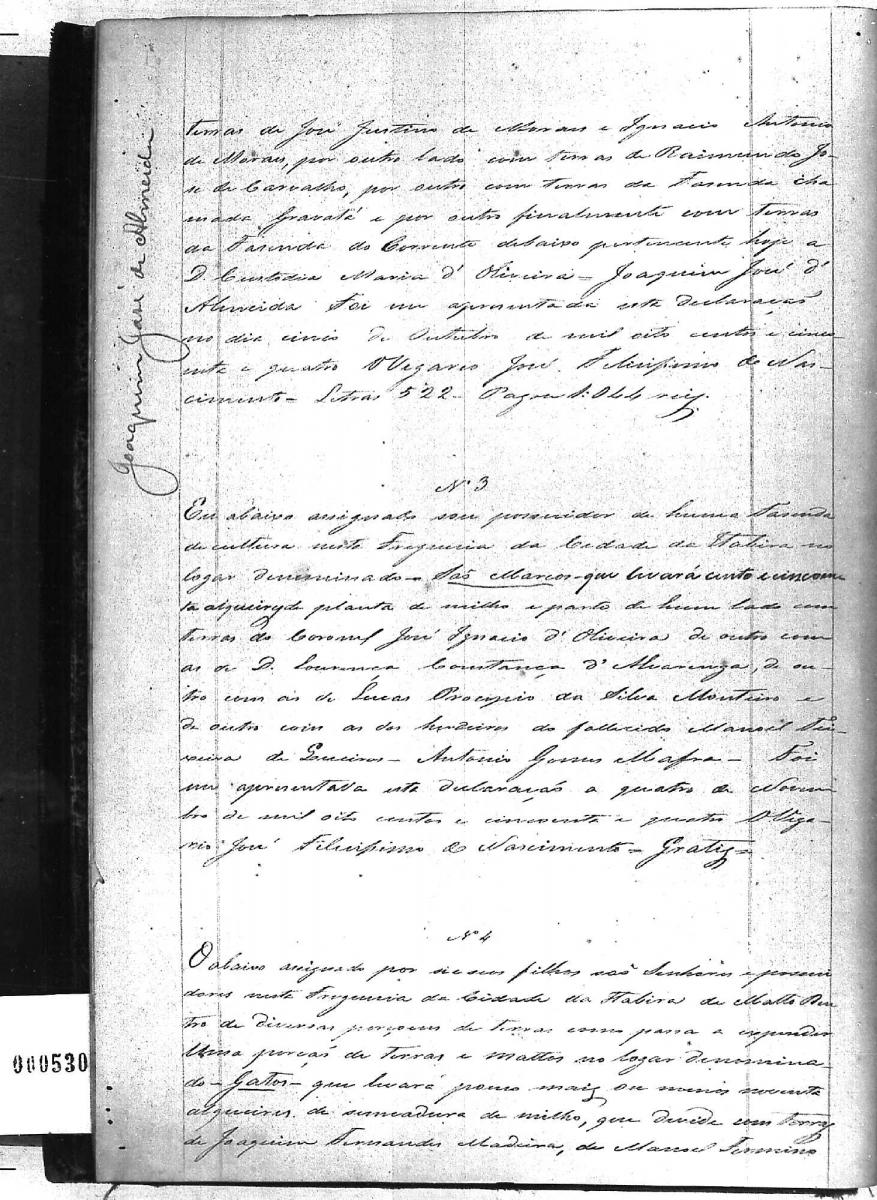 Joaquim José de Almeida
terras de José Justino de Moraes e Ignacio Antonio
de Moraes, por outro lado com terras de Raimundo Jo-
se de Carvalho, por outro com terras da Fasenda cha
mada Gravatá e por outro finalmente com terras
da Fasenda do Corrente debaixo pertencente hoje a
D. Custodia Maria d'Oliveira - Joaquim José d'
Almeida Foi me apresentada esta declaração
no dia cinco de Outubro de mil oito centos e cinco
enta e quatro O Vegario José Felicissimo do Nas-
cimento - Letras 522 - Pagou 1:044 reis.
Nº 3
Eu abaixo assignado sou possuidor de huma Fasenda
de cultura nesta Freguezia da Cidade da Itabira no
logar denominado - São Marcos - que levará cento e cincoen
ta alqueires de planta de milho e parte de hum lado com
terras do Coronel José Ignacio d'Oliveira de outro com
as de D. Lourença Constança d'Alvarenga, de ou-
tro com as de Lucas Procopio da Silva Monteiro e
de outro com as dos herdeiros do fallecido Manoel
de Queiros - Antonio Gomes Mafra - Foi
me apresentada esta declaração a quatro de Novem
bro de mil oito centos e cincoenta e quatro O Viga-
rio José Felicissimo do Nascimento - Gratis -
Nº 4
O abaixo assignado por si e seus filhos são Senhores e possui
dores nesta Freguezia da Cidade da Itabira de Matto Den
tro de diversas porçoens de terras como passa a expender
Uma porção de terras e mattos no logar denomina-
do - Gatos - que levará pouco mais ou menos noventa
alqueires de semeadura de milho, que divide com terras
de Joaquim Fernandes Madeira, de Manoel Firmino
000530